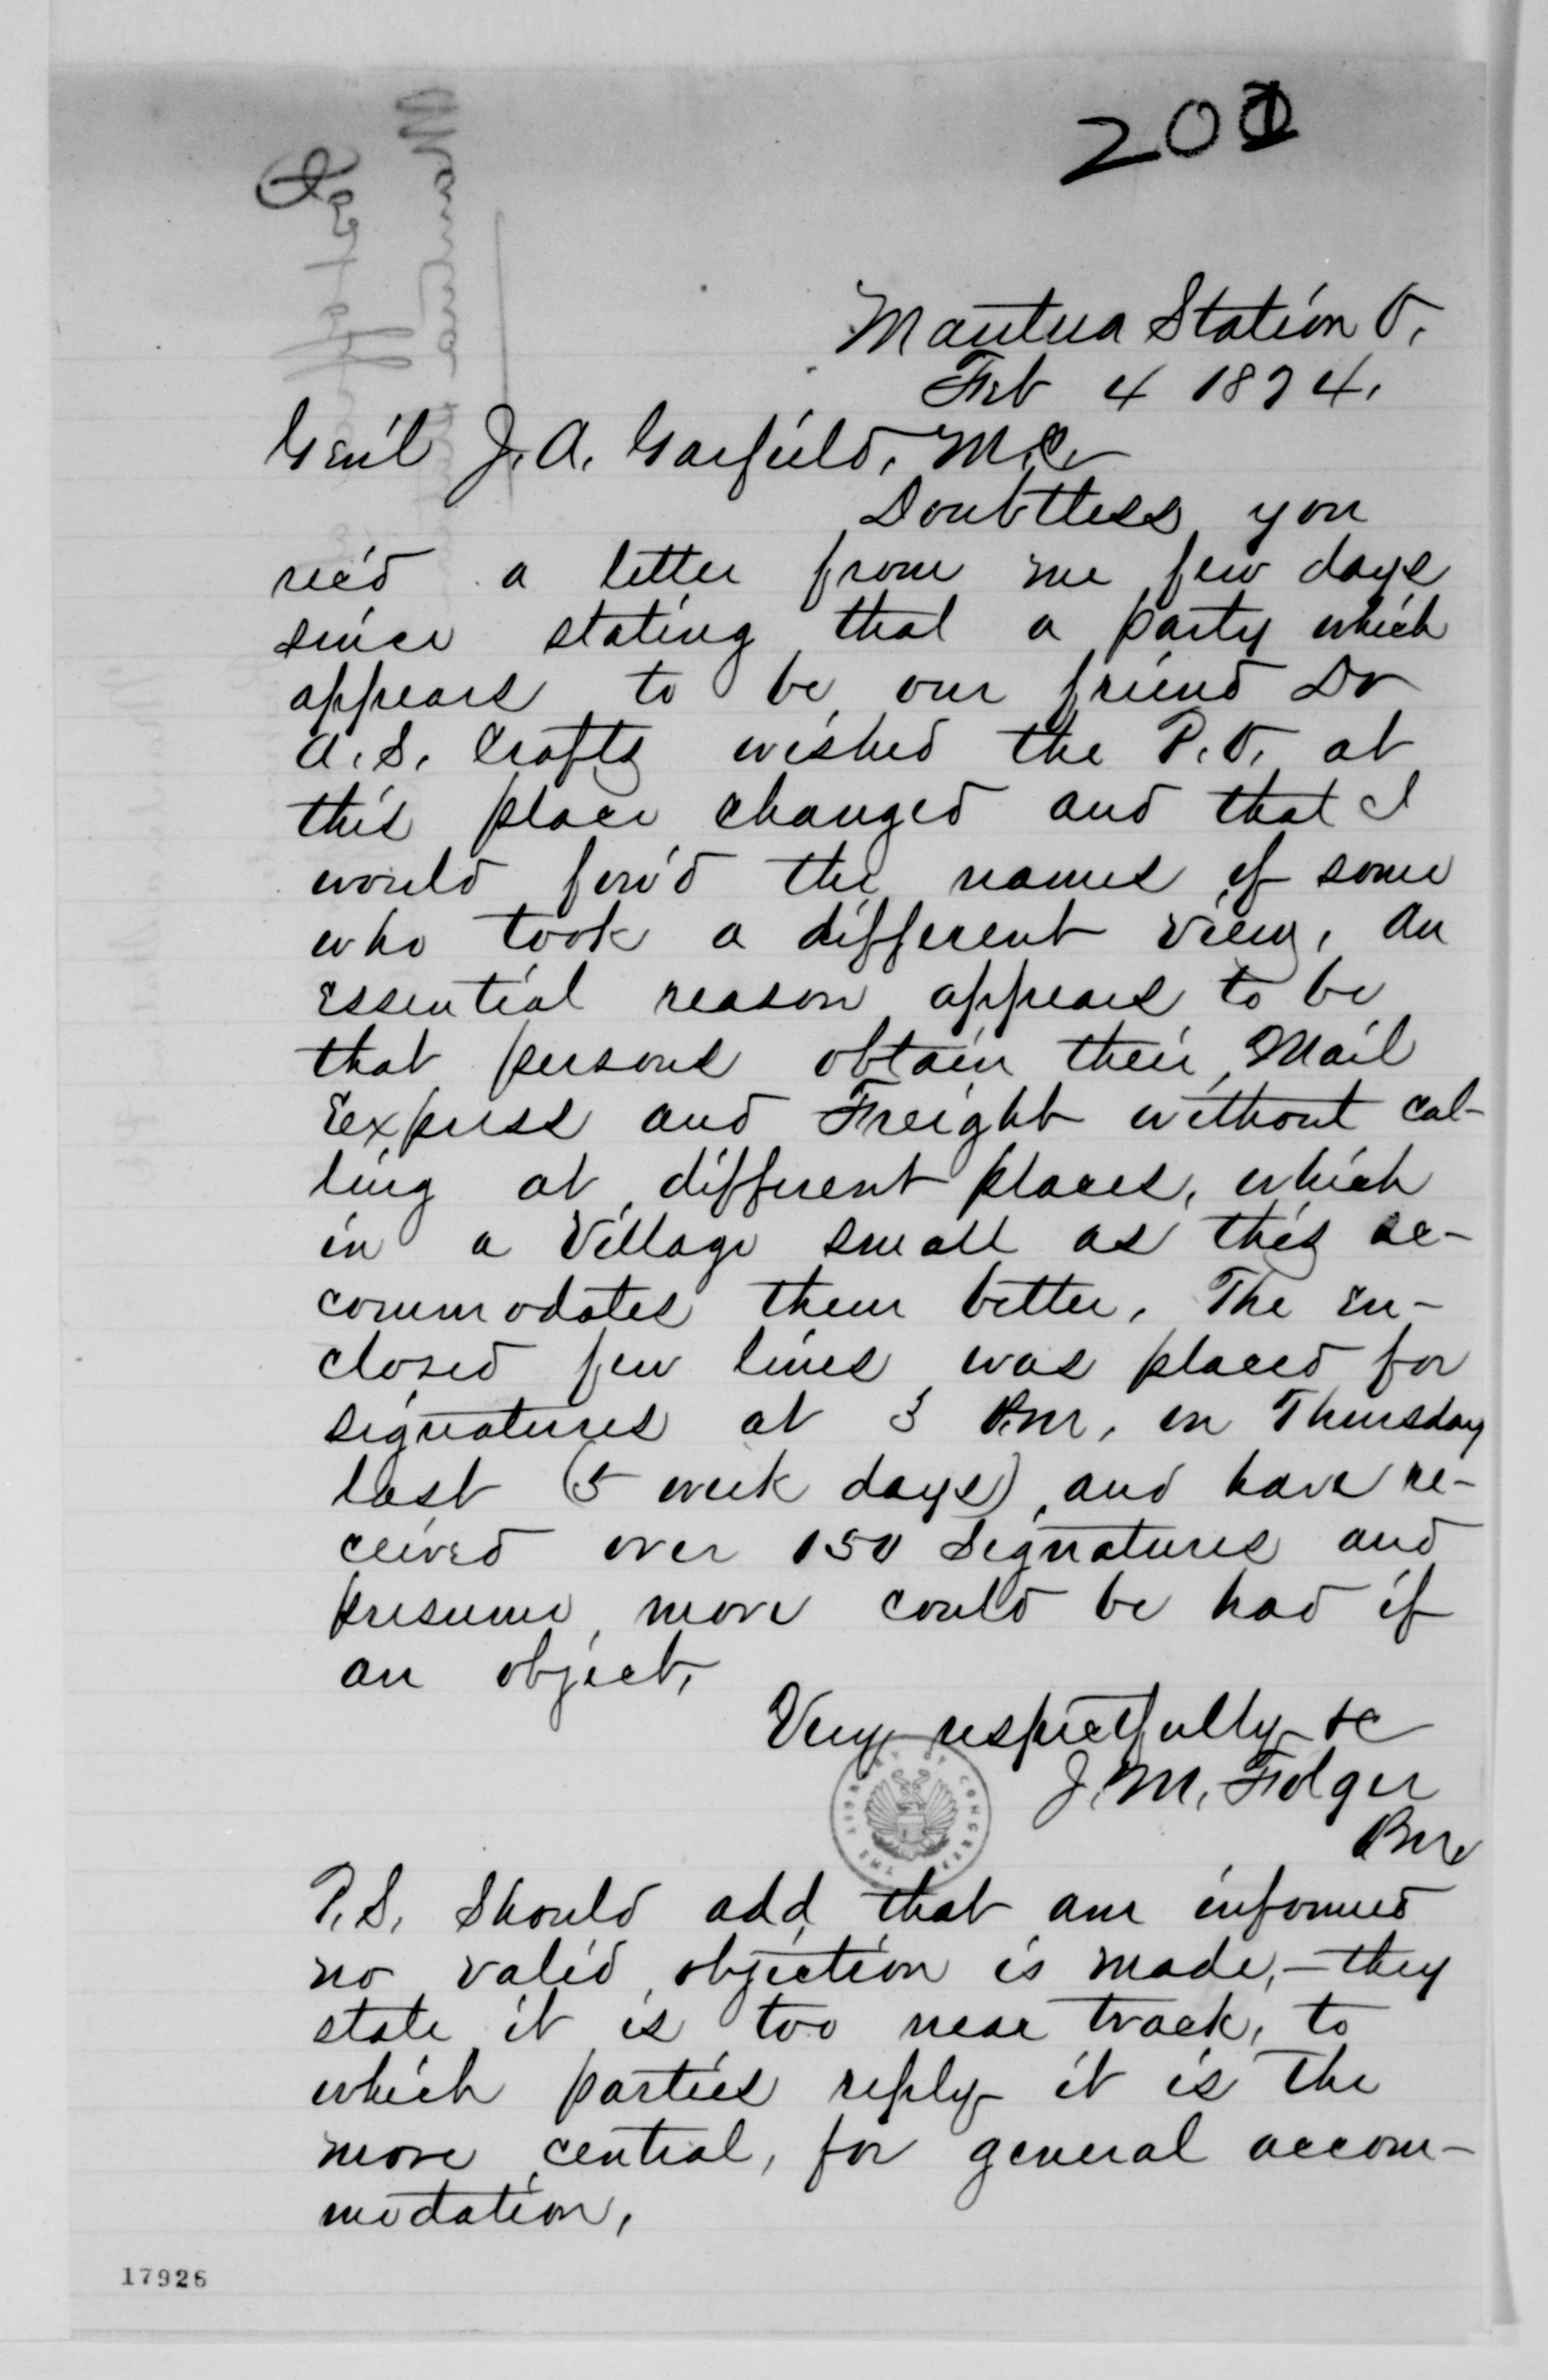 201
Mantua Station O.
Feb 4 1874.
Gen'l J. A. Garfield, M.C.
Doubtless you
rec'd a letter from me few days
since stating that a party which
appears to be our friend Dr
A. S. Crafts wished the P.O. at
this place changed and that I
would forw'd the names of some
who took a different view, An
essential reason appears to be
that persons obtain their Mail
Express and Freight without cal-
ling at different places, which
in a Village small as this ac-
commodates them better. The en-
closed few lines was placed for
signatures at 3 P.M, on Thursday
last (5 week days), and have re-
ceived over 150 Signatures and
presume more could be had if
an object.
Very respectfully &c
J. M. Folger
P.M.
THE LIBRARY OF CONGRESS
P.S. Should add that am informed
no valid objection is made, - they
state it is too near track, to
which parties reply it is the
more central, for general accom-
modation.
17926